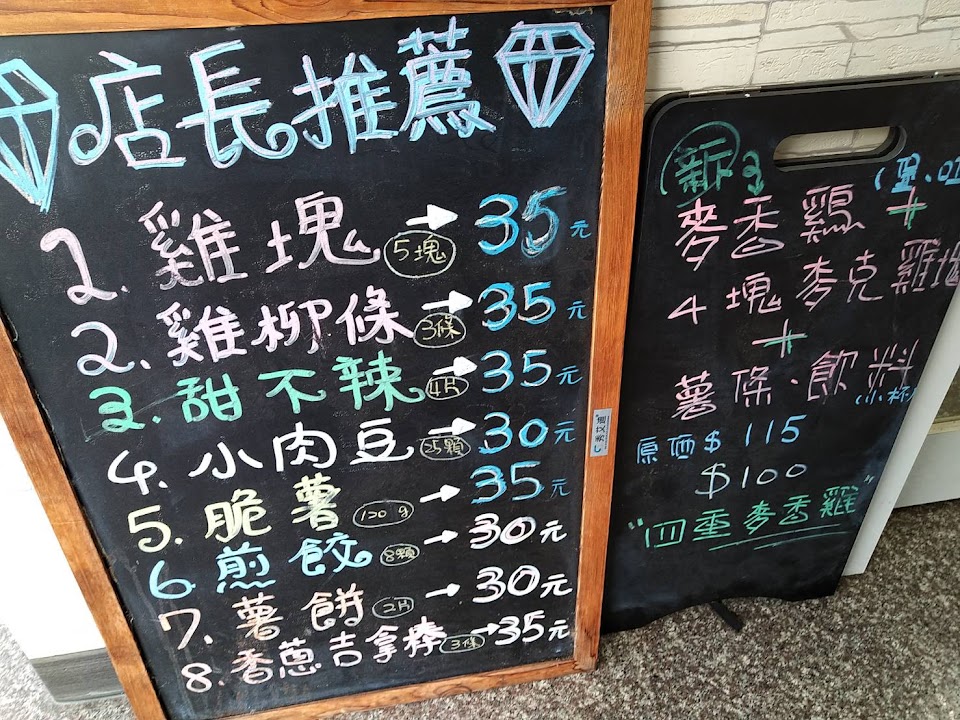 店長推薦
1. 雞塊 5塊 → 35元
2. 雞柳條 3條 → 35元
3. 甜不辣 4片 → 35元
4. 小肉豆 25顆 → 30元
5. 脆薯 120g → 35元
6 煎餃 8顆 → 30元
7. 薯餅 2片 → 30元
8. 香蔥吉拿棒 3條 → 35元
新
麥香鷄+
4塊麥克雞塊
+
薯條.飲料
(小杯)
原価$ 115
$100
"四重麥香雞"